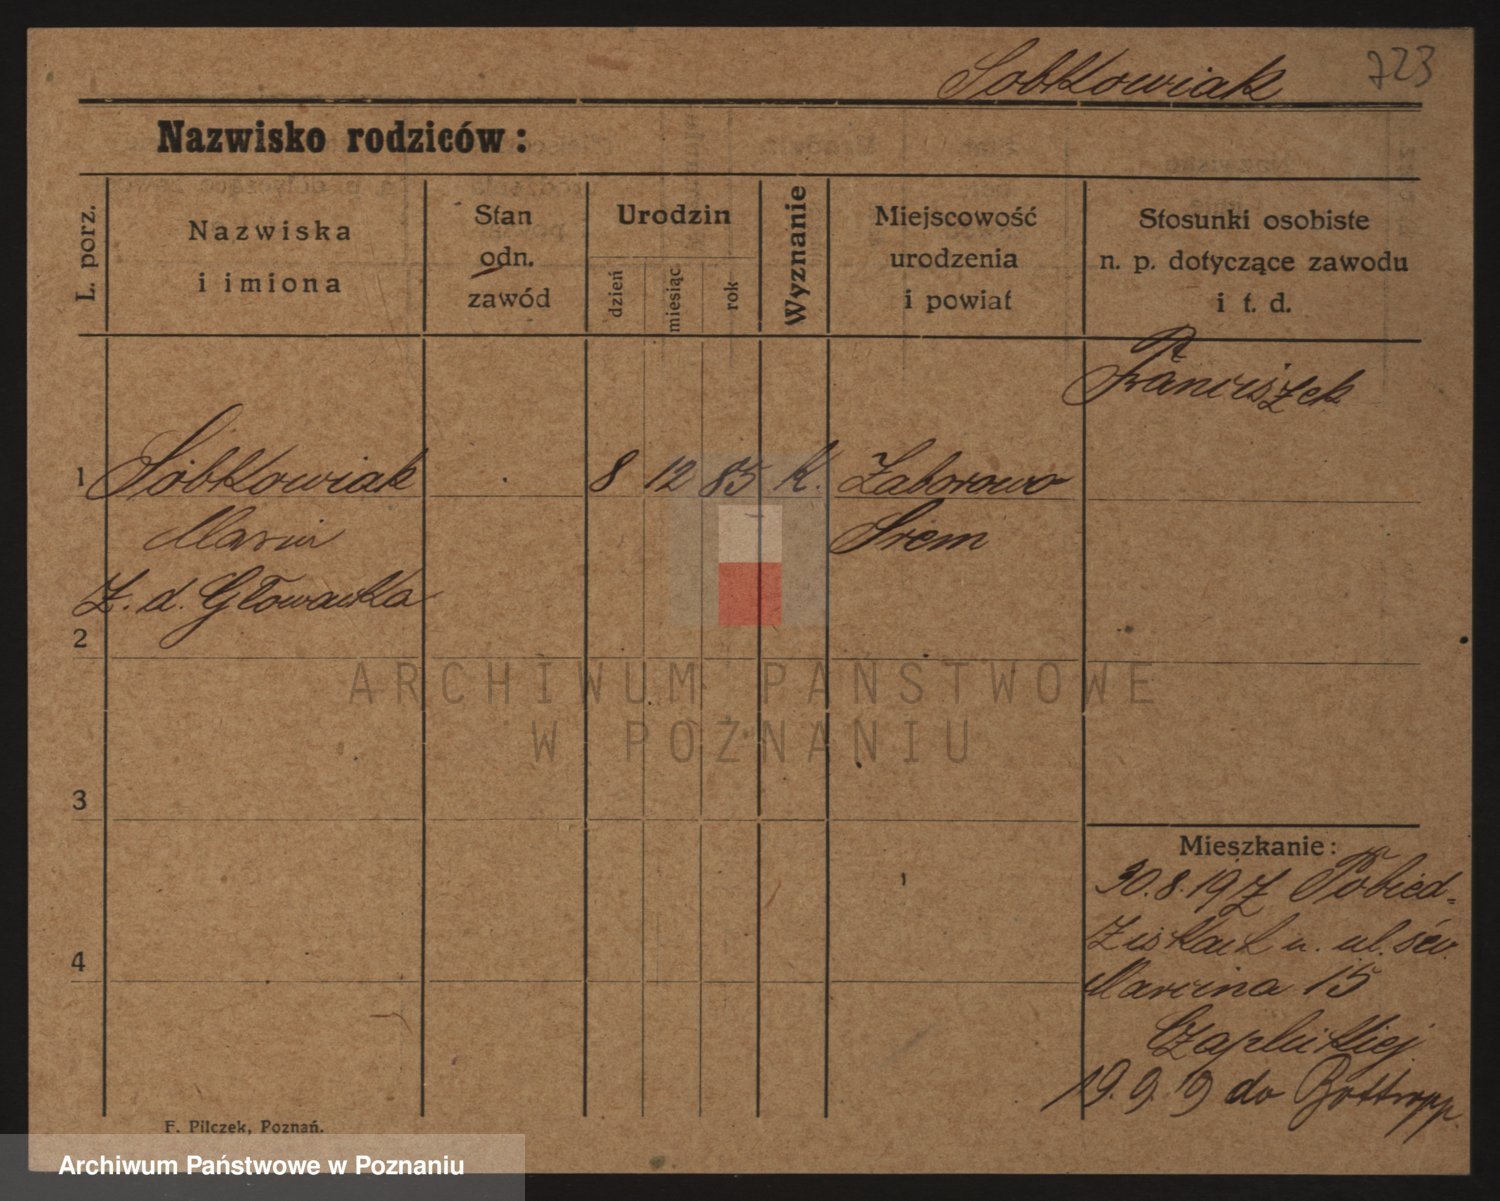 Sobkowiak 723
Nazwisko rodziców:
L. porz.
Nazwiska
i imiona
Stan
odn.
zawód
Urodzin
dzień
miesiąc
rok
Wyznanie
Miejscowość
urodzenia
i powiat
Stosunki osobiste
n. p. dotyczące zawodu
i t. d.
Franciszek
1 Sobkowiak 8 12 85 k. Zaborowo
Maria Śrem
z. d. Głowacka
2
ARCHIWUM PAŃSTWOWE
W POZNANIU
3
Mieszkanie:
30.8.19 z Pobied-
ziskach u. ul. św.
4
Marcina 15
Czaplickiej
19.9.19 do Bottropp.
F. Pilczek, Poznań.
Archiwum Państwowe w Poznaniu